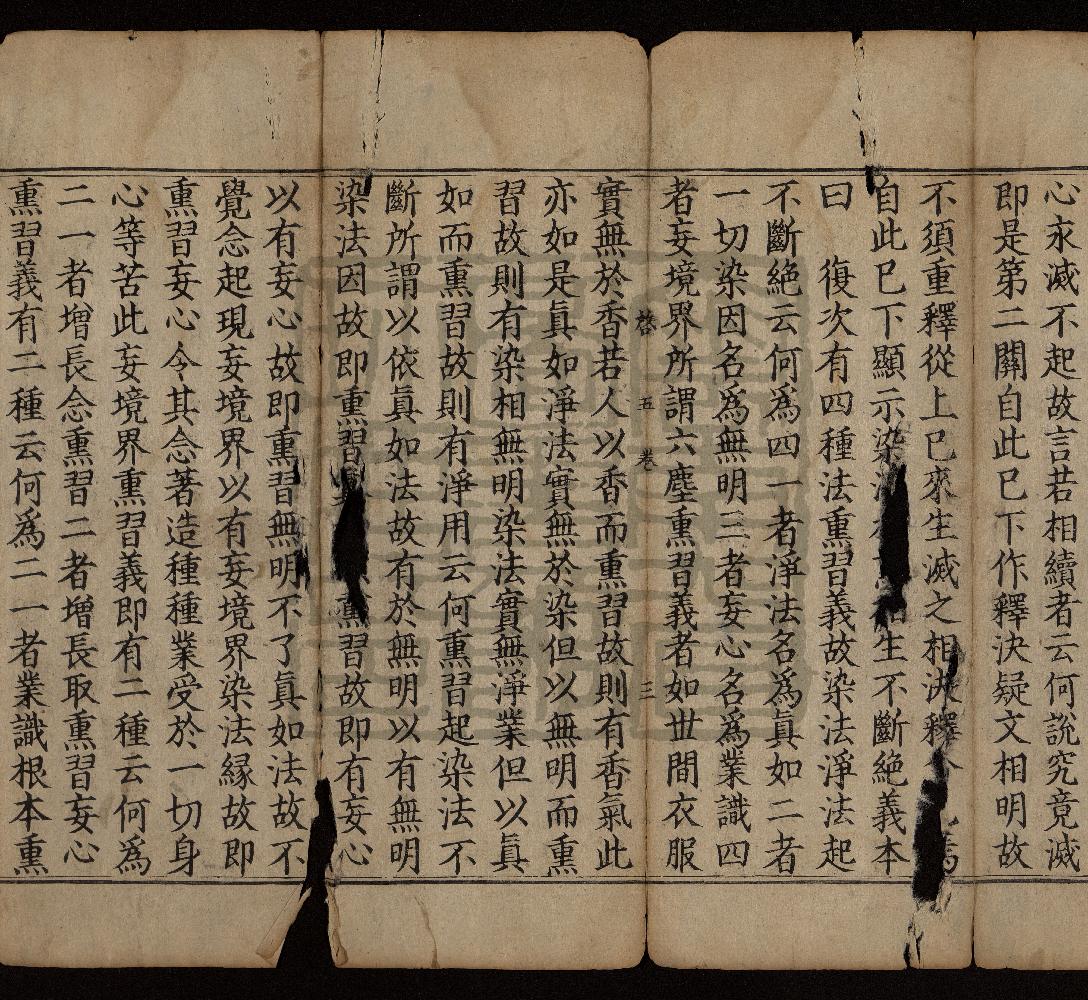 心永滅不起故言若相續者云何說究竟滅
即是第二關自此已下作釋決疑文相明故
不須重釋從上已來生滅之相決釋
自此已下顯示染生不斷絶義本
曰　復次有四種法熏習義故染法淨法起
不斷絶云何爲四一者淨法名爲眞如二者
一切染因名爲無明三者妄心名爲業識四
者妄境界所謂六塵熏習義者如世間衣服
柊　五　卷　三
實無於香若人以香而熏習故則有香氣此
亦如是眞如淨法實無於染但以無明而熏
習故則有染相無明染法實無淨業但以眞
如而熏習故則有淨用云何熏習起染法不
斷所謂以依眞如法故有於無明以有無明
染法因故即熏習熏習故即有妄心
以有妄心故即熏習無明不了眞如法故不
覺念起現妄境界以有妄境界染法緣故即
熏習妄心令其念著造種種業受於一切身
心等苦此妄境界熏習義即有二種云何爲
二一者增長念熏習二者增長取熏習妄心
熏習義有二種云何爲二一者業識根本熏